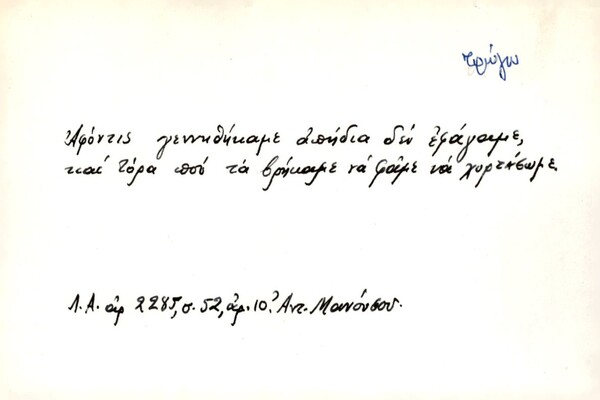 τρώγω
Ἀφόντις γεννηθήκαμε ἀπήδια δέν ἐφάγαμε,
καί τόρα πού τά βρήκαμε νά φᾶμε νά χορτάσωμε.
Λ.Α. ἀρ 2285, σ. 52, ἀρ. 10. Ἀντ. Μανούσου.